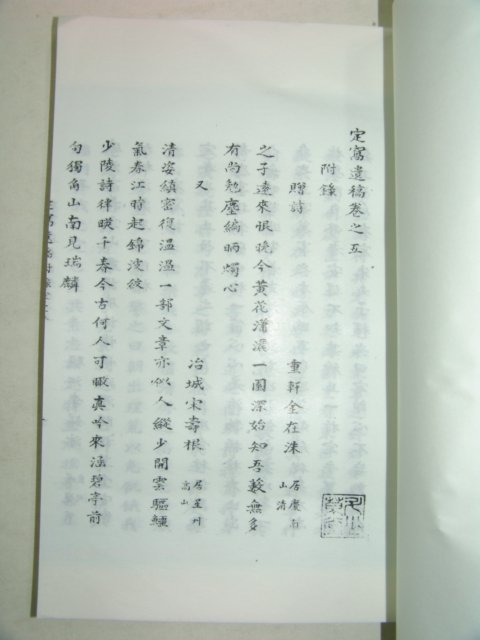 定窩遺稿卷之五
附錄
贈詩 重軒金在洙 居慶南山清
之子遠來恨晩今黃花瀟灑一園深始知吾藪無多
有尚勉塵編晒燭心
又 冶城宋壽根 居星州高山
清姿縝密復溫溫一部文章亦似人縱少開雲驅鱷
氣春江時起錦波紋
少陵詩律暎千春今古何人可瞰真吟來涵碧亭前
句獨角山南見瑞麟